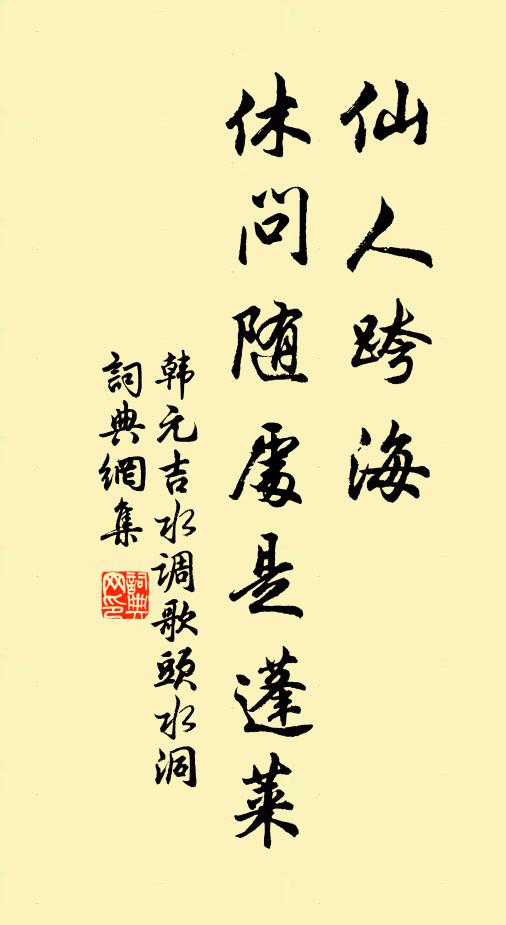 仙人跨海
休问随處是蓬莱
韩元吉水调歌頭水洞
詞典網集
詞典网印